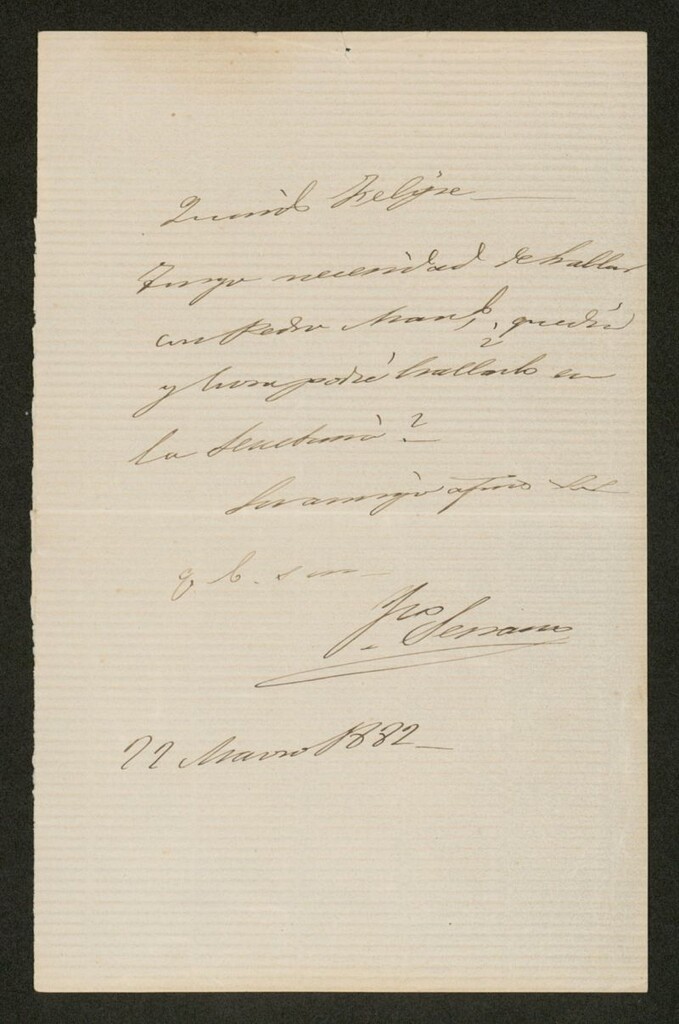 Querido Felipe
Tengo necesidad de hallar
con Pedro ¿que dia
y hora podré hallarlo en
la Secretaria?
Su amigo afmo
q b. s m
Fco Serrano
22 Marzo 1882